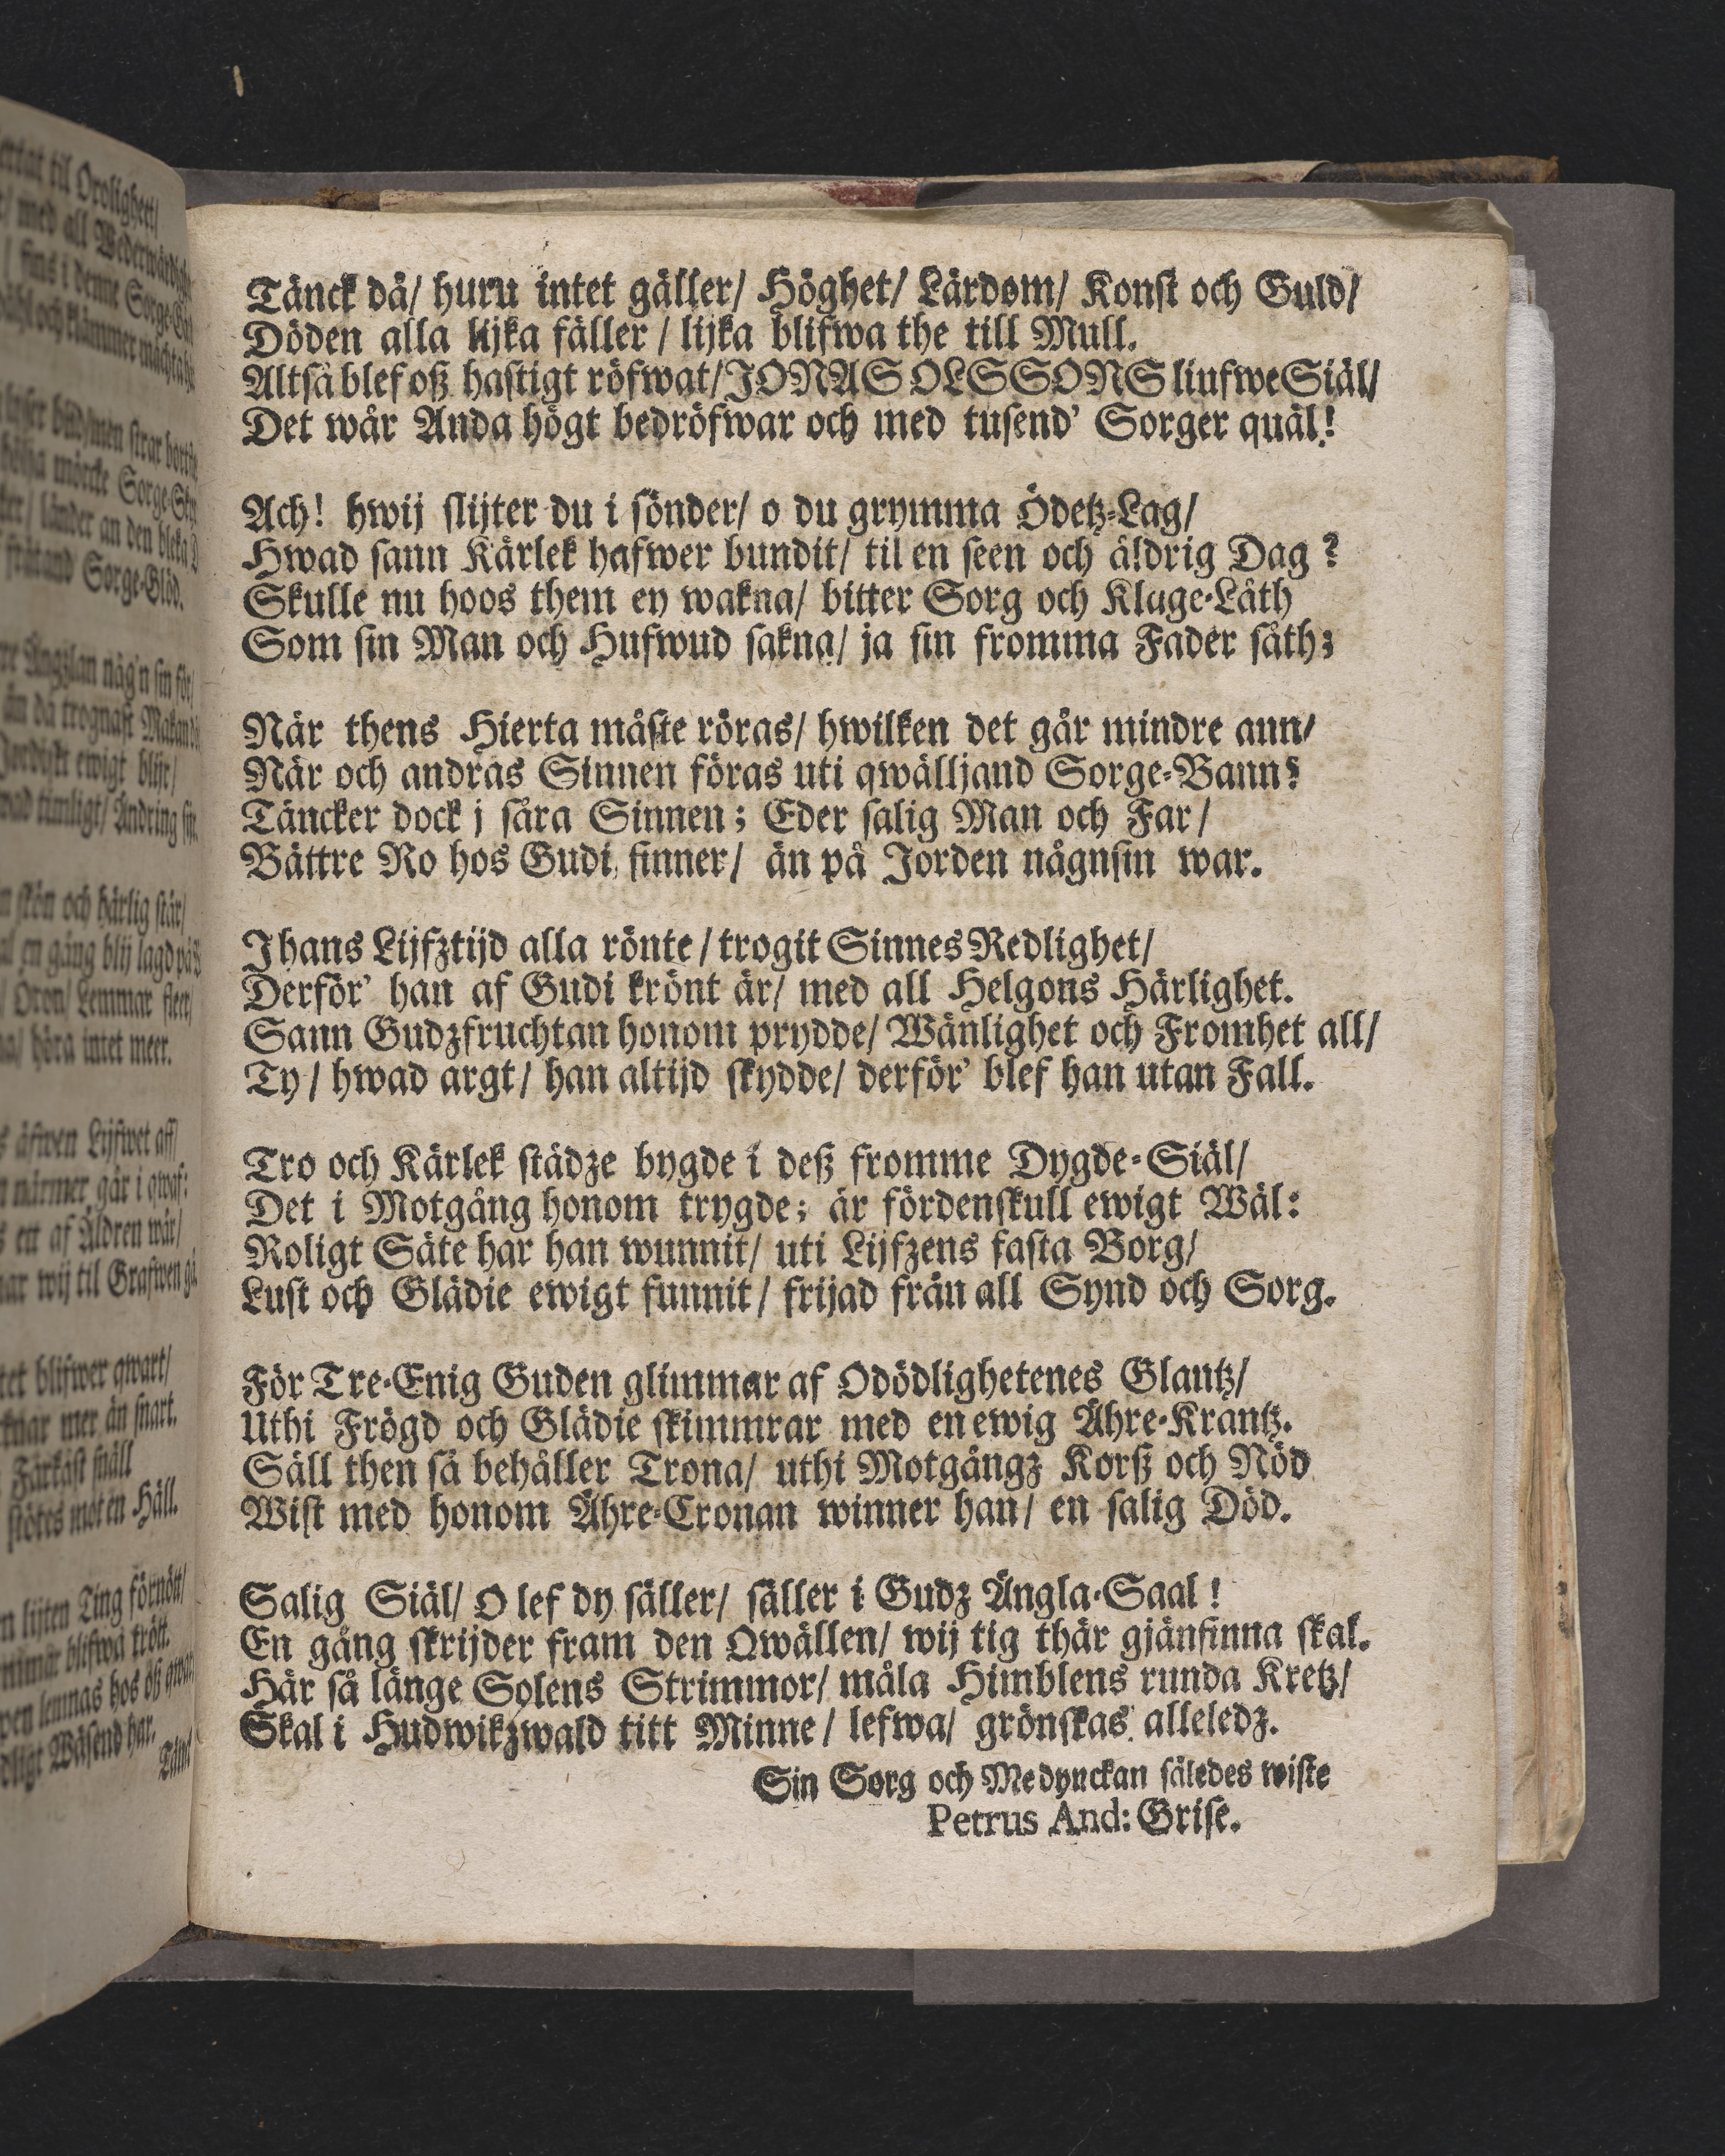 Tänck då/ huru intet gäller/ Höghet/ Lärdom/ Konst och Guld/
Döden alla lijka fäller / lijka blifwa the till Mull.
Altså blef oß hastigt röfwat/ JONAS OLSSONS liufwe Siäl/
Det wår Anda högt bedröfwar och med tusend' Sorger quäl!
Ach! hwij slijter du i sönder/ o du grymma Ödetz-Lag/
Hwad sann Kärlek hafwer bundit/ til en seen och äldrig Dag?
Skulle nu hoos them ey wakna/ bitter Sorg och Klage-Låth
Som sin Man och Hufwud sakna/ ja sin fromma Fader såth;
När thens Hierta måste röras/ hwilken det går mindre ann/
När och andras Sinnen föras uti qwälljand Sorge-Bann?
Täncker dock j såra Sinnen; Eder salig Man och Far/
Bättre Ro hos Gudi finner/ än på Jorden någnsin war.
I hans Lijfztijd alla rönte/ trogit Sinnes Redlighet/
Derför' han af Gudi krönt är/ med all Helgons Härlighet.
Sann Gudzfruchtan honom prydde/ Wänlighet och Fromhet all/
Ty/ hwad argt/ han altijd skydde/ derför' blef han utan Fall.
Tro och Kärlek städze bygde i deß fromme Dygde-Siäl/
Det i Motgång honom trygde; är fördenskull ewigt Wäl:
Roligt Säte har han wunnit/ uti Lijfzens fasta Borg/
Lust och Glädie ewigt funnit/ frijad från all Synd och Sorg.
För Tre-Enig Guden glimmar af Odödlighetenes Glantz/
Uthi Frögd och Glädie skimmrar med en ewig Ähre-Krantz.
Säll then så behåller Trona/ uthi Motgångz Korß och Nöd
Wist med honom Ähre-Cronan winner han/ en salig Död.
Salig Siäl/ O lef dy säller/ säller i Gudz Ängla-Saal!
En gång skrijder fram den Qwällen/ wij tig thär gjänfinna skal.
Här så länge Solens Strimmor/ måla Himblens runda Kretz/
Skal i Hudwikzwald titt Minne/ lefwa/ grönskas alleledz.
Sin Sorg och Medynckan således wiste
Petrus And: Grise.